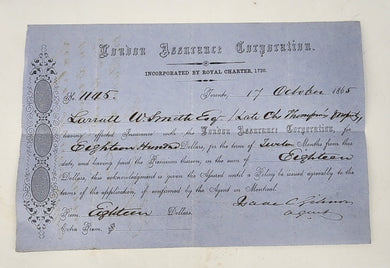 London Assurance Corporation.
INCORPORATED BY ROYAL CHARTER, 1720.
No. 1145. Toronto, 17 October 1865
Larratt W Smith Esq (Late Chs Thompson's property)
having effected Insurance with the London Assurance Corporation, for
Eighteen Hundred Dollars, for the term of Twelve Months from this
date, and having paid the Premium thereon, in the sum of Eighteen
Dollars, this acknowledgment is given the Assured until a Policy be issued agreeably to the
terms of the application, if confirmed by the Agent at Montreal.
Isaac C. Gilmor
Agent
Prem. Eighteen Dollars.
Extra Prem. $